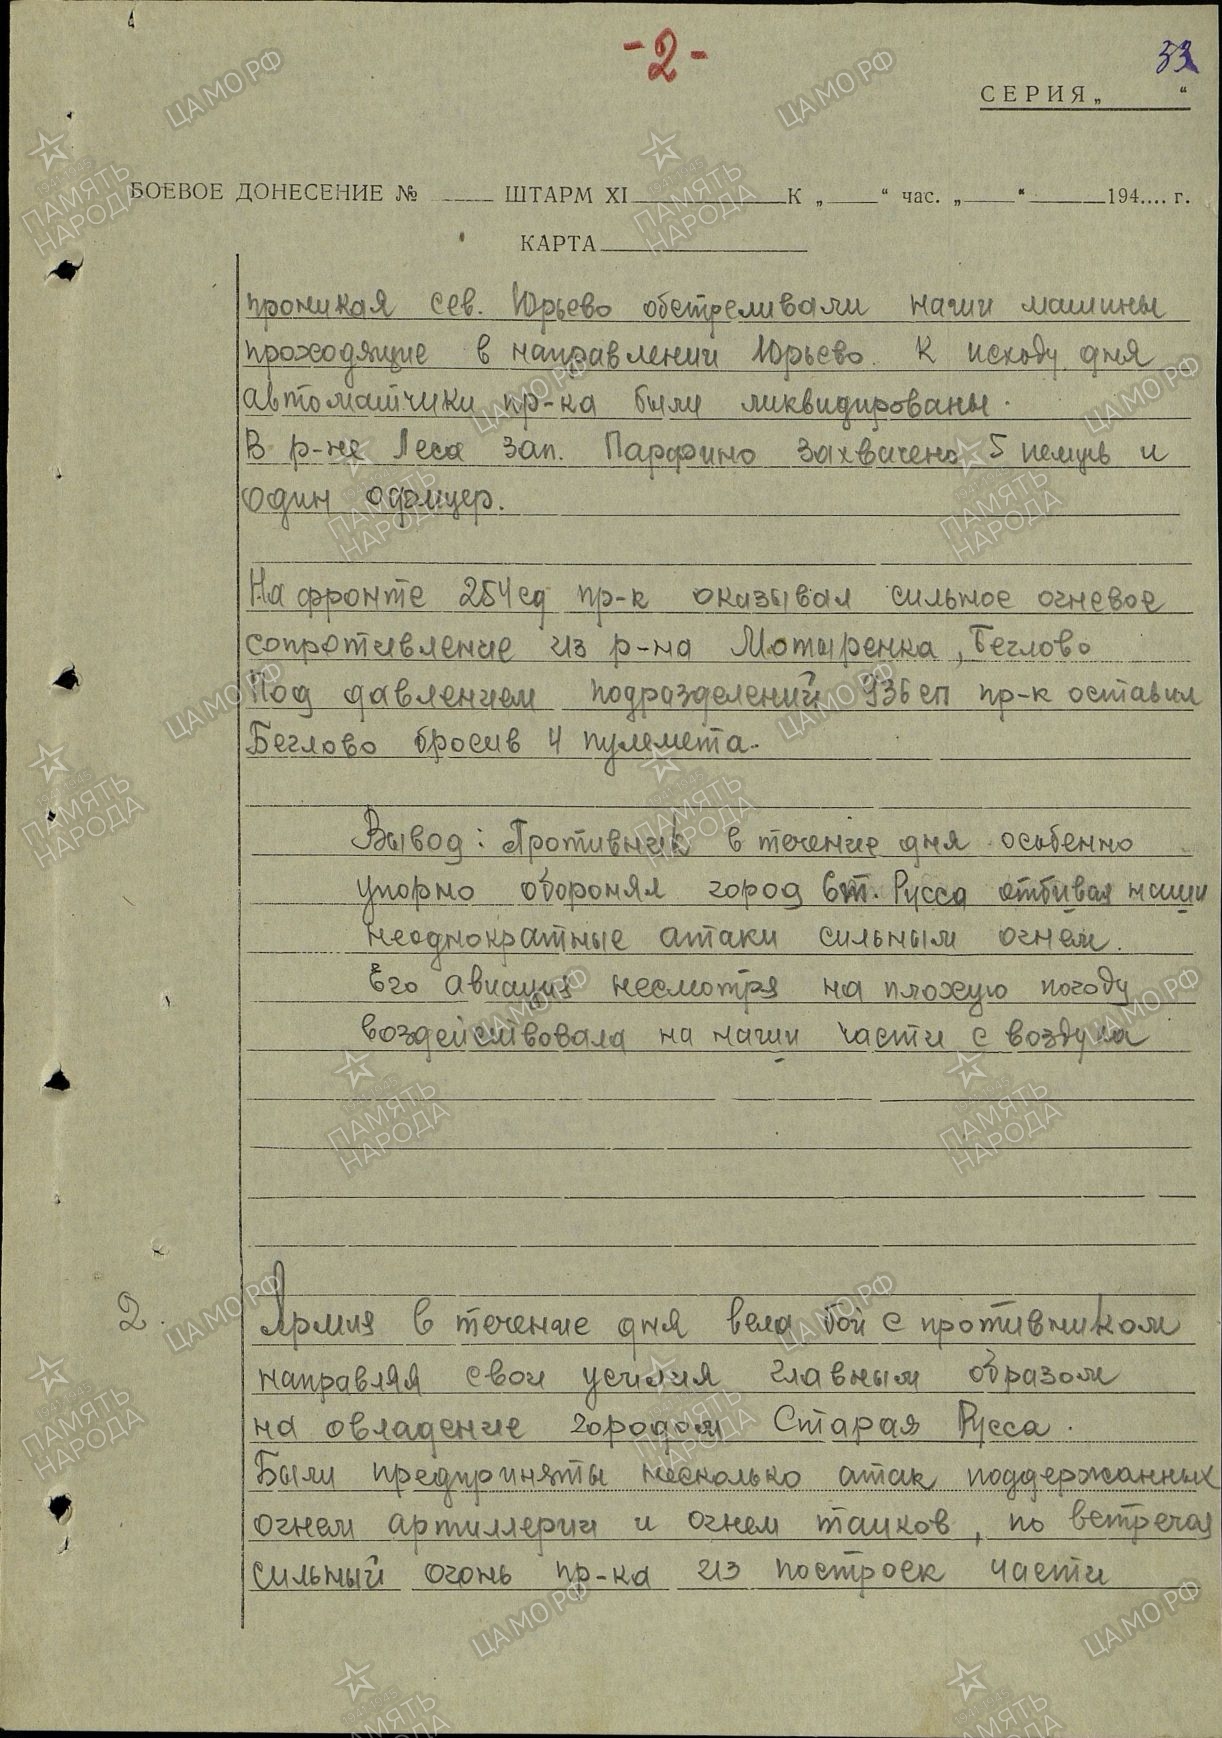 -2-
33
СЕРИЯ „ “
БОЕВОЕ ДОНЕСЕНИЕ № ШТАРМ XI К „ “ час. „ “ 194.... г.
КАРТА
проникая сев. Юрьево обстреливали наши машины
проходящие в направлении Юрьево. К исходу дня
автоматчики пр-ка были ликвидированы.
В р-не Леса зап. Парфино захвачено 5 немцев и
один офицер.
На фронте 254сд пр-к оказывал сильное огневое
сопротивление из р-на Мотыренка, Беглово
Под давлением подразделений 936 сп пр-к оставил
Беглово бросив 4 пулемета.
Вывод: Противник в течение дня особенно
упорно оборонял город Ст. Русса отбивая наши
неоднократные атаки сильным огнем.
Его авиация несмотря на плохую погоду
воздействовала на наши части с воздуха
2.
Армия в течение дня вела бой с противником
направляя свои усилия главным образом
на овладение городом Старая Русса.
Были предприняты несколько атак поддержанных
огнем артиллерии и огнем танков, но встречая
сильный огонь пр-ка из построек части
ЦАМО РФ
ПАМЯТЬ НАРОДА